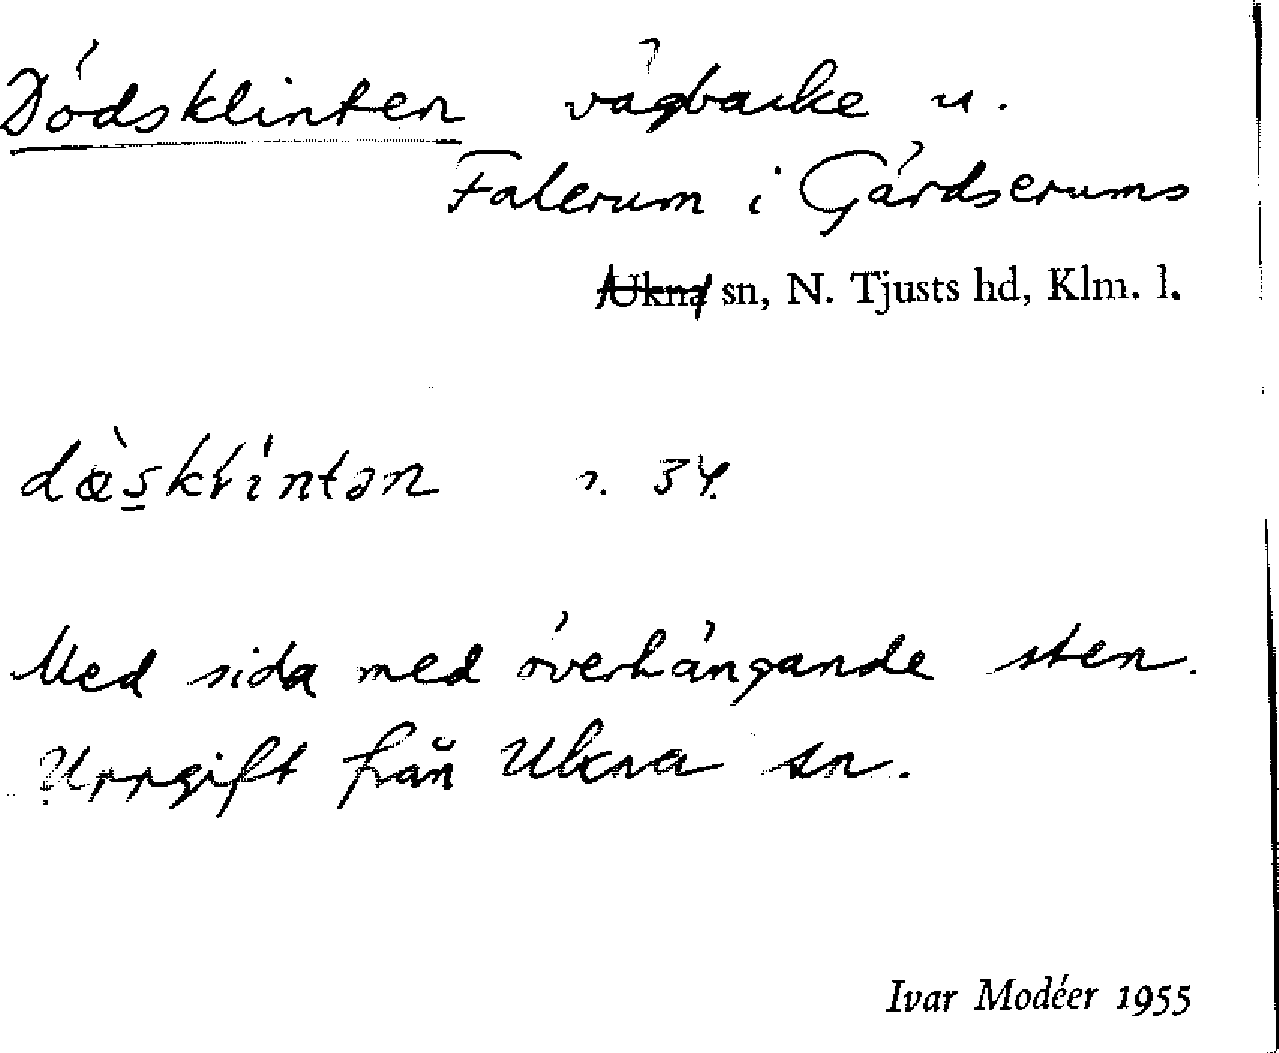 Dödsklinten vägbacke v.
Falerum i Gärdserums
Ukna sn, N. Tjusts hd, Klm. l.
dœ̀sklíntən 34.
Med sida med överhängande sten.
Uppgift från Ukna sn.
Ivar Modéer 1955